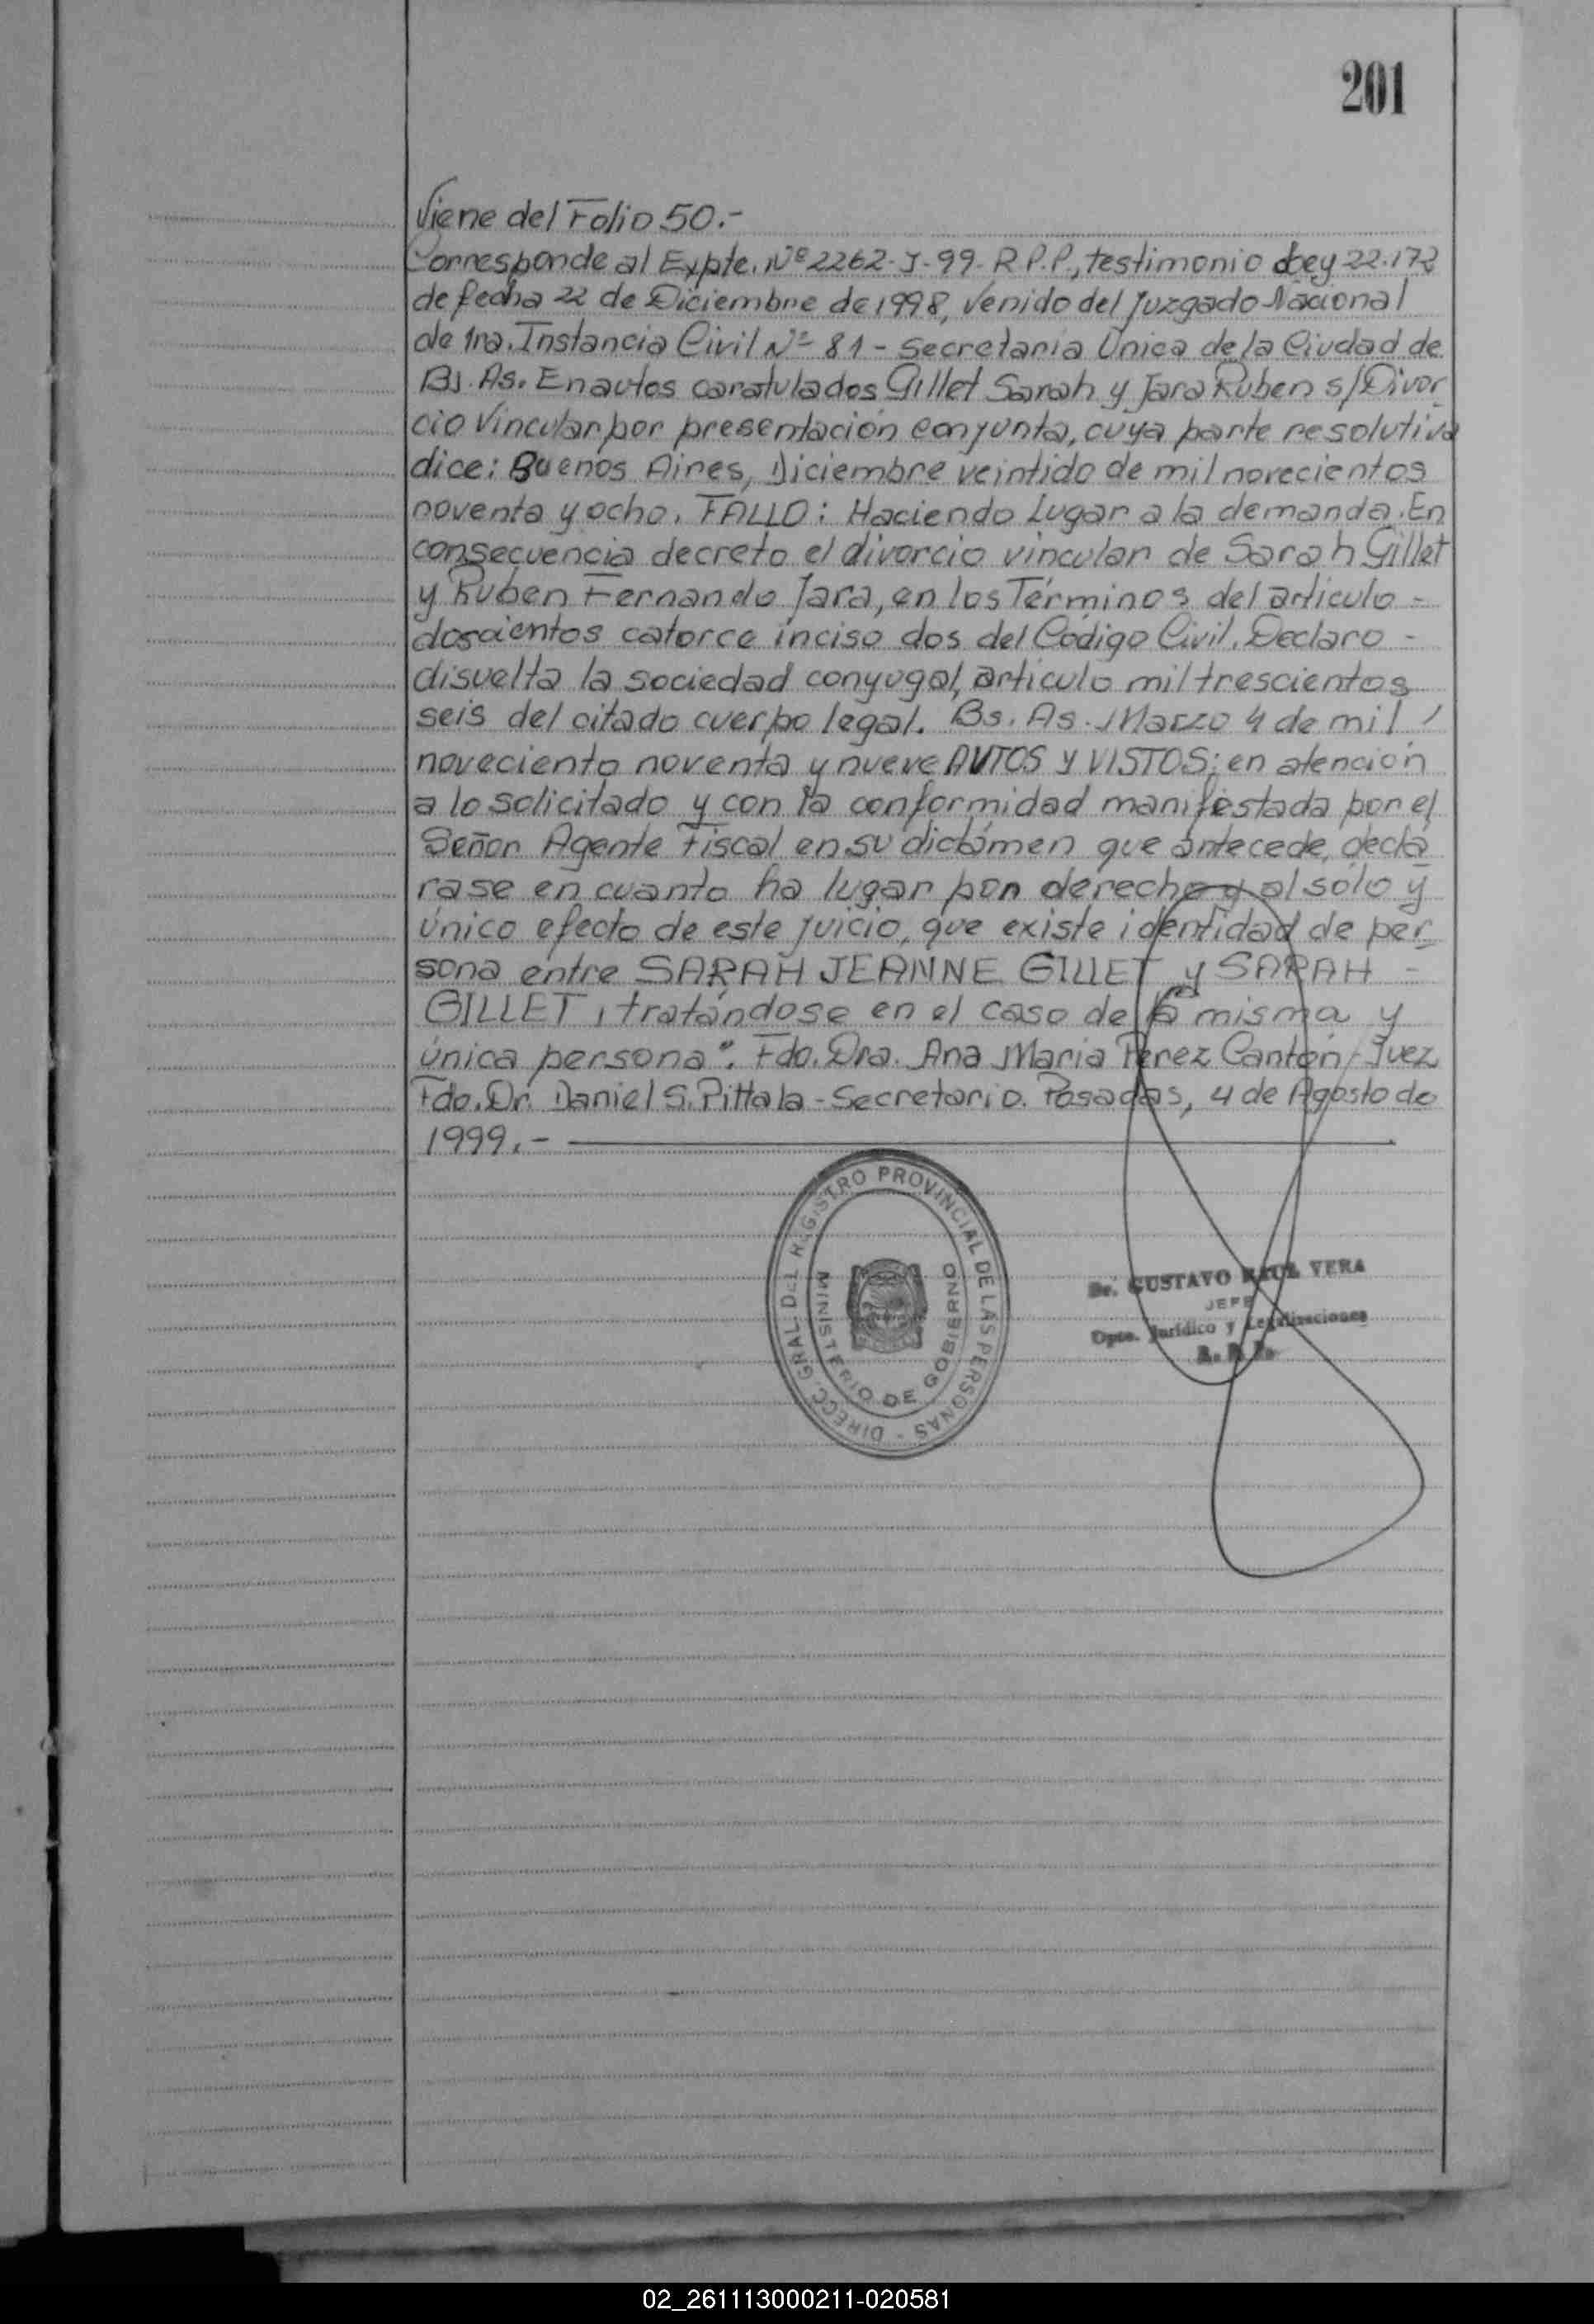 201
Viene del Folio 50.-
Corresponde al Expte. Nº 2262-J-99-R.P.P., testimonio Ley 22.172
de fecha 22 de Diciembre de 1998, venido del Juzgado Nacional
de 1ra. Instancia Civil Nº 81 - Secretaría Única de la Ciudad de
Bs. As. En autos caratulados Gillet Sarah y Jara Ruben s/Divor
cio Vincular por presentación conjunta, cuya parte resolutiva
dice: Buenos Aires, Diciembre veintido de mil novecientos
noventa y ocho. FALLO: Haciendo Lugar a la demanda. En
consecuencia decreto el divorcio vincular de Sarah Gillet
y Ruben Fernando Jara, en los Términos del articulo -
doscientos catorce inciso dos del Código Civil. Declaro -
disuelta la sociedad conyugal, articulo mil trescientos
seis del citado cuerpo legal. Bs. As. Marzo 4 de mil /
noveciento noventa y nueve AUTOS Y VISTOS; en atención
a lo solicitado y con la conformidad manifestada por el
Señor Agente Fiscal en su dictámen que antecede, declá
rase en cuanto ha lugar por derecho y al sólo y
único efecto de este juicio, que existe identidad de per-
sona entre SARAH JEANNE GILLET y SARAH -
GILLET, tratándose en el caso de la misma y
única persona". Fdo. Dra. Ana Maria Perez Cantón - Juez
Fdo. Dr. Daniel S. Pittala - Secretario. Posadas, 4 de Agosto de
1999.-
DIRECC. GRAL. DEL REGISTRO PROVINCIAL DE LAS PERSONAS -
MINISTERIO DE GOBIERNO
Dr. GUSTAVO RAUL VERA
JEFE
Dpto. Jurídico y Legalizaciones
R. P. P.
02_261113000211-020581